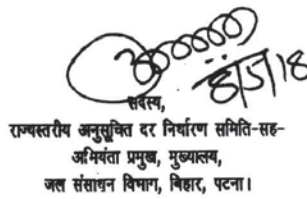 सदस्य,
राज्यस्तरीय अनुसूचित दर निर्धारण समिति-सह-
अभियंता प्रमुख, मुख्यालय,
जल संसाधन विभाग, बिहार, पटना।